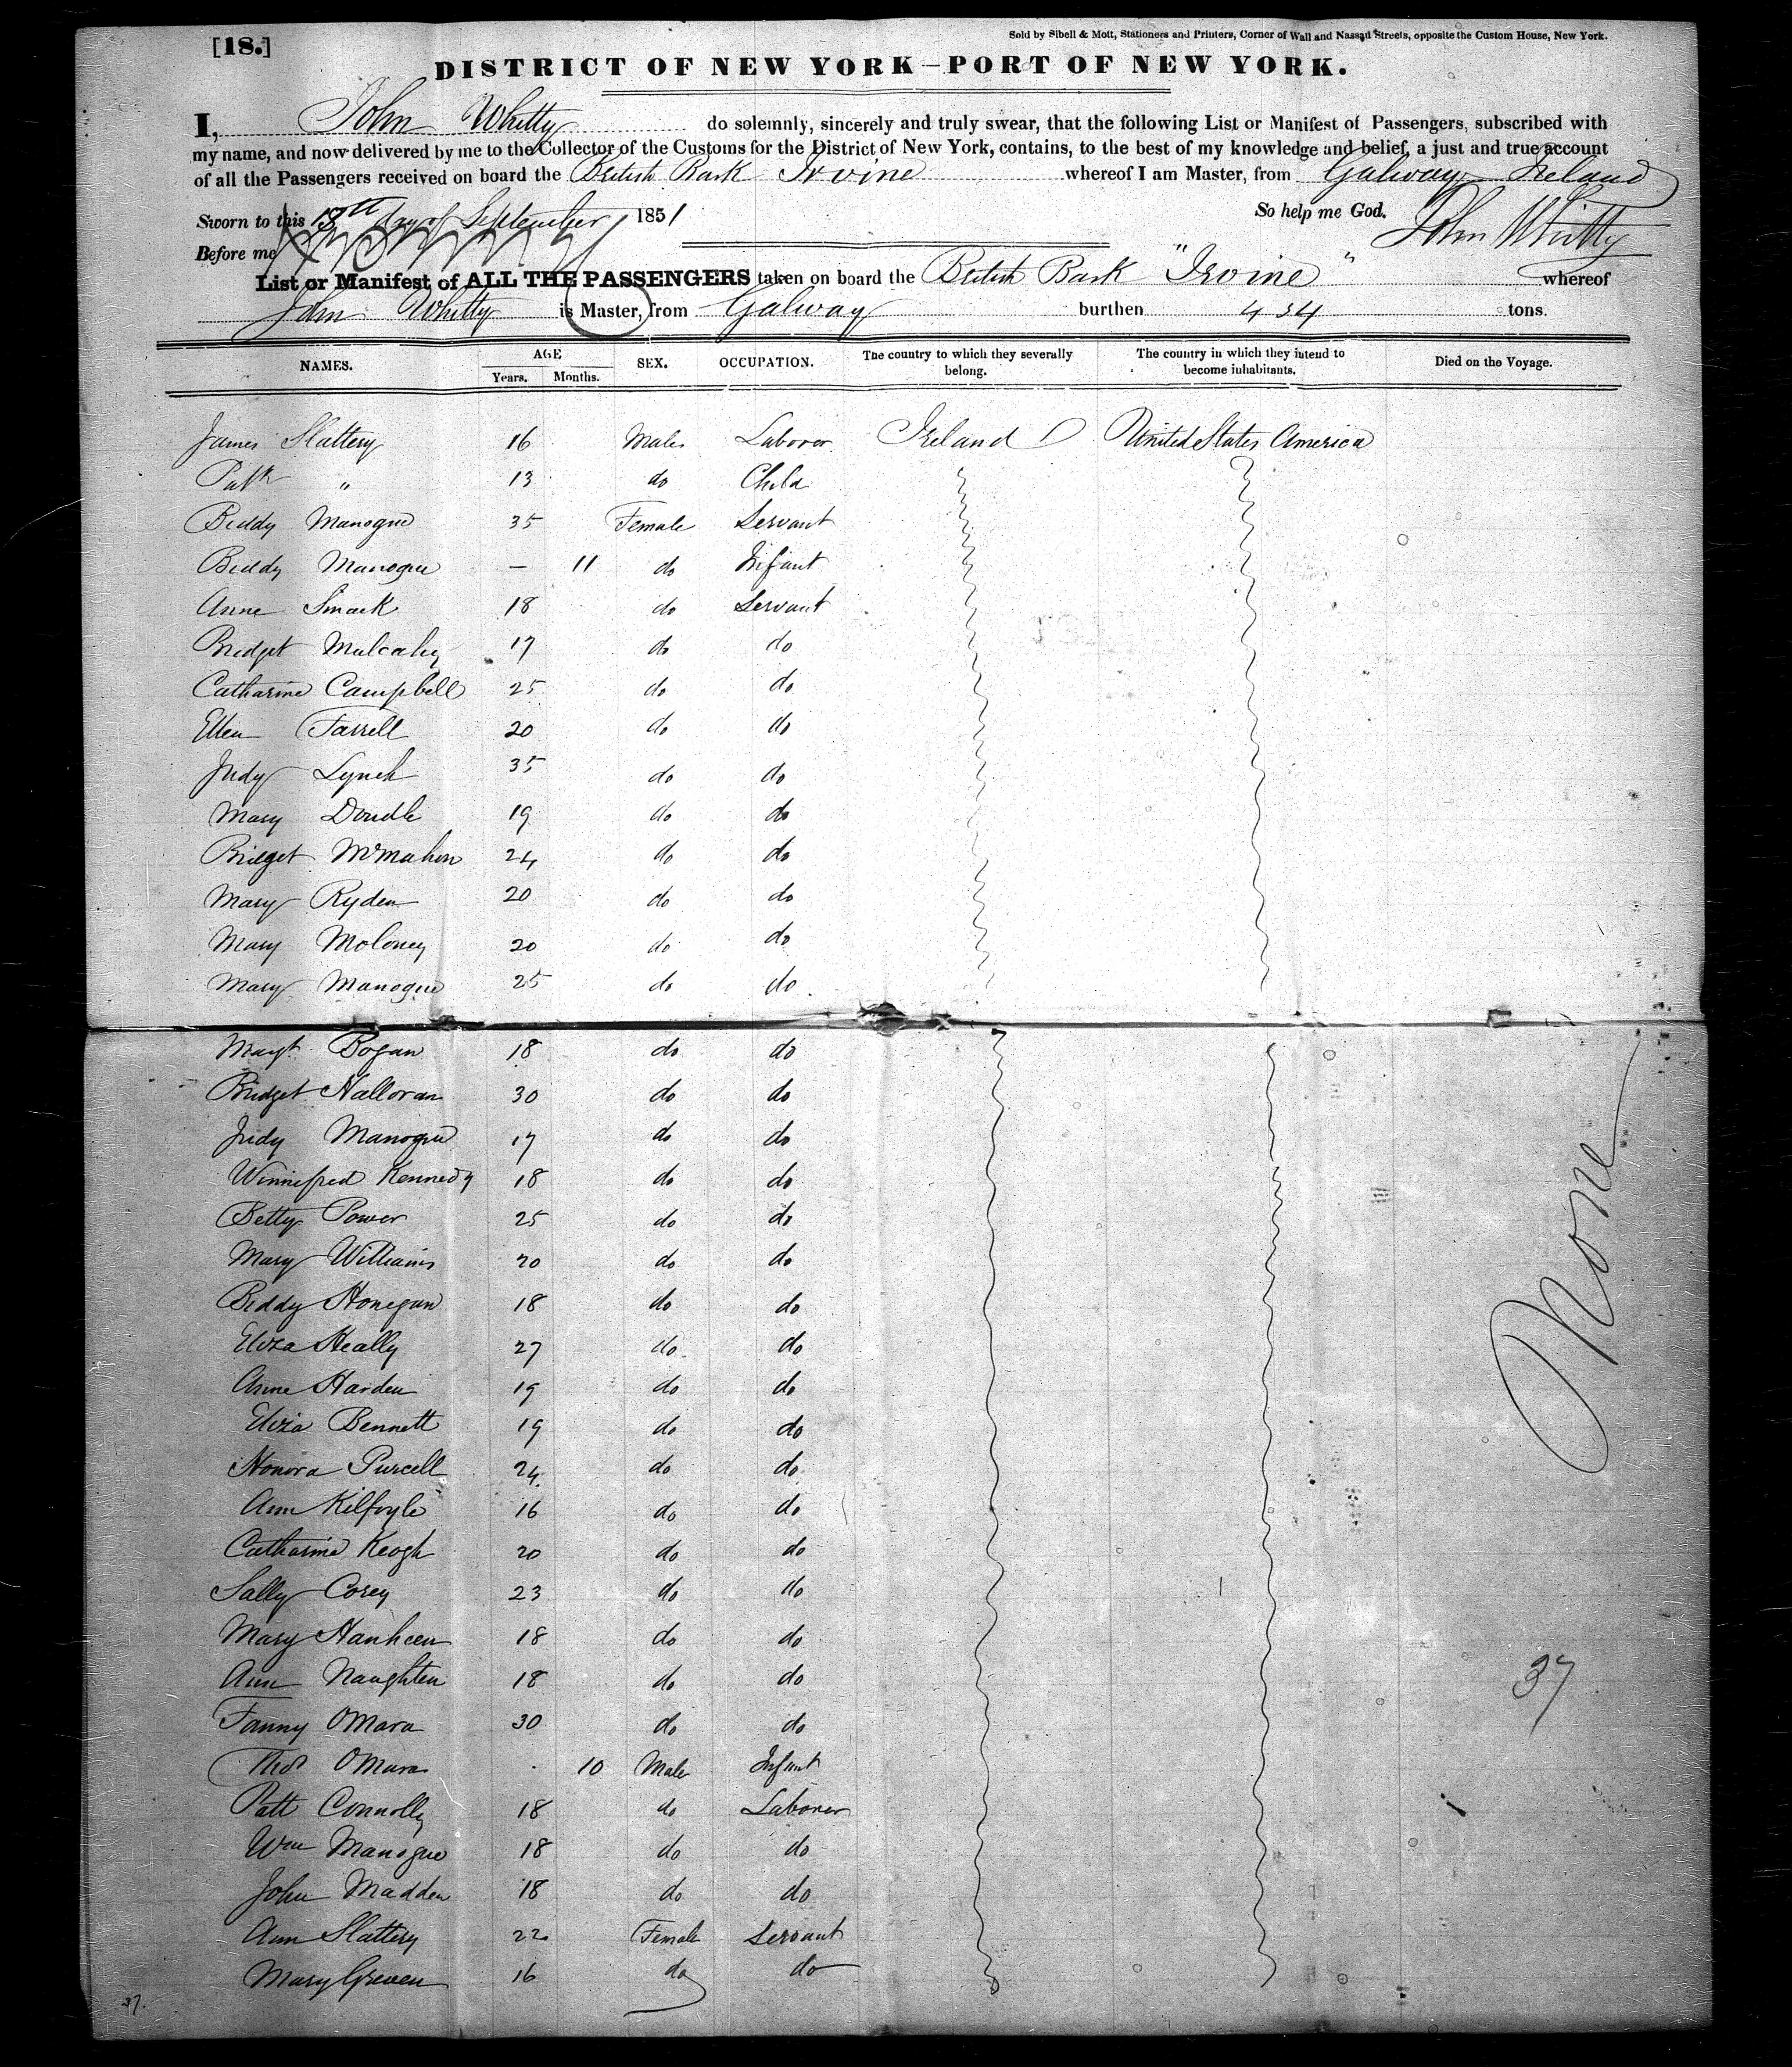 [18.]
Sold by Sibell & Mott, Stationers and Printers, Corner of Wall and Nassau Streets, opposite the Custom House, New York.
DISTRICT OF NEW YORK—PORT OF NEW YORK.
I, John Whitty do solemnly, sincerely and truly swear, that the following List or Manifest of Passengers, subscribed with
my name, and now delivered by me to the Collector of the Customs for the District of New York, contains, to the best of my knowledge and belief, a just and true account
of all the Passengers received on board the British Bark Irvine whereof I am Master, from Galway Ireland
Sworn to this 18th day of September 1851 So help me God. John Whitty
Before me
List or Manifest of ALL THE PASSENGERS taken on board the British Bark "Irvine" whereof
John Whitty is Master, from Galway burthen 434 tons.
NAMES. AGE Years. Months. SEX. OCCUPATION. The country to which they severally belong. The country in which they intend to become inhabitants. Died on the Voyage.
James Slattery 16 Male Laborer Ireland United States America
Patk " 13 do Child
Biddy Manogue 35 Female Servant
Biddy Manogue — 11 do Infant
Anne Smack 18 do Servant
Bridget Mulcahy 17 do do
Catharine Campbell 25 do do
Ellen Farrell 20 do do
Judy Lynch 35 do do
Mary Doudle 19 do do
Bridget McMahon 24 do do
Mary Ryden 20 do do
Mary Moloney 20 do do
Mary Manogue 25 do do
Magt. Bogan 18 do do
Bridget Halloran 30 do do
Judy Manogue 17 do do
Winnifred Kennedy 18 do do
Betty Power 25 do do
Mary Williams 20 do do
Biddy Honegan 18 do do
Eliza Heally 27 do do
Anne Harden 19 do do
Eliza Bennett 19 do do
Honora Purcell 24 do do
Ann Kilfoyle 16 do do
Catharine Keogh 20 do do
Sally Corey 23 do do
Mary Hanheen 18 do do
Ann Naughten 18 do do
Fanny OMara 30 do do
OMara 10 Male Infant
Patt Connolly 18 do Laborer
Wm Manogue 18 do do
John Madden 18 do do
Ann Slattery 22 Female Servant
Mary Greven 16 do do
None
37
37.